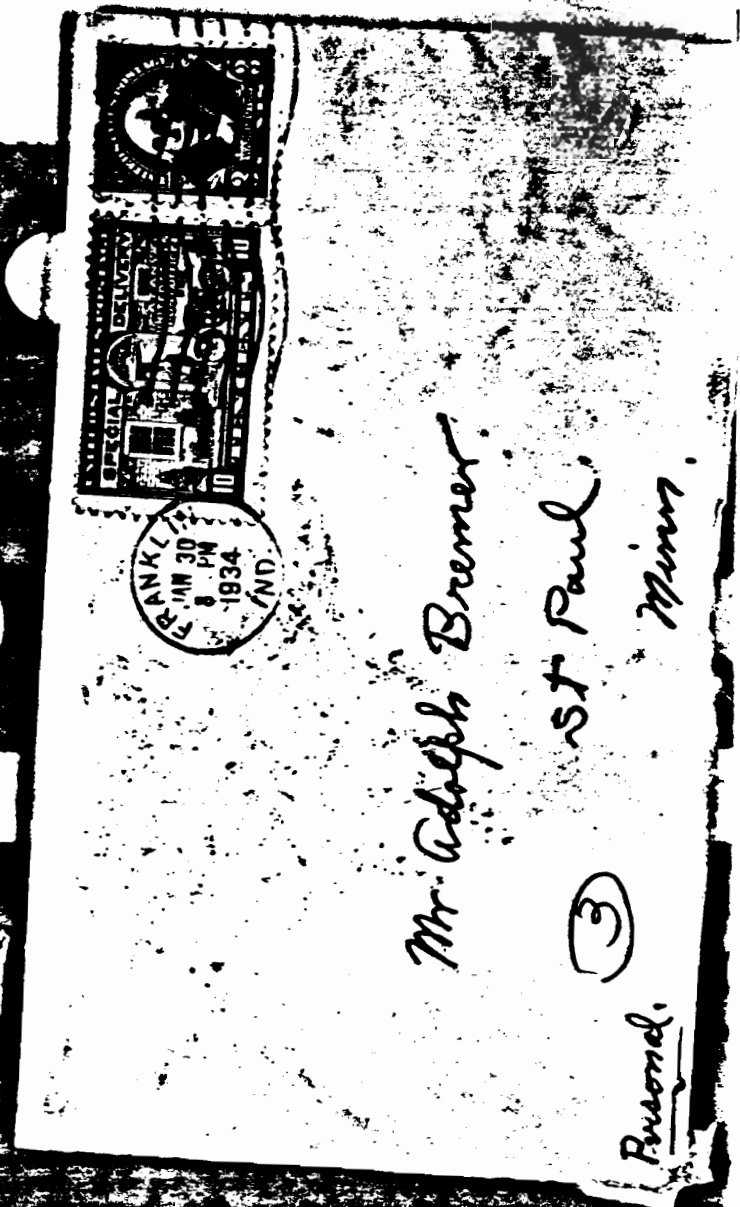 SPECIAL DELIVERY
10
10
FRANKL
JAN 30
8 PM
1934
IND.
Mr. Adolph Bremer
St Paul.
Minn.
3
Personal.